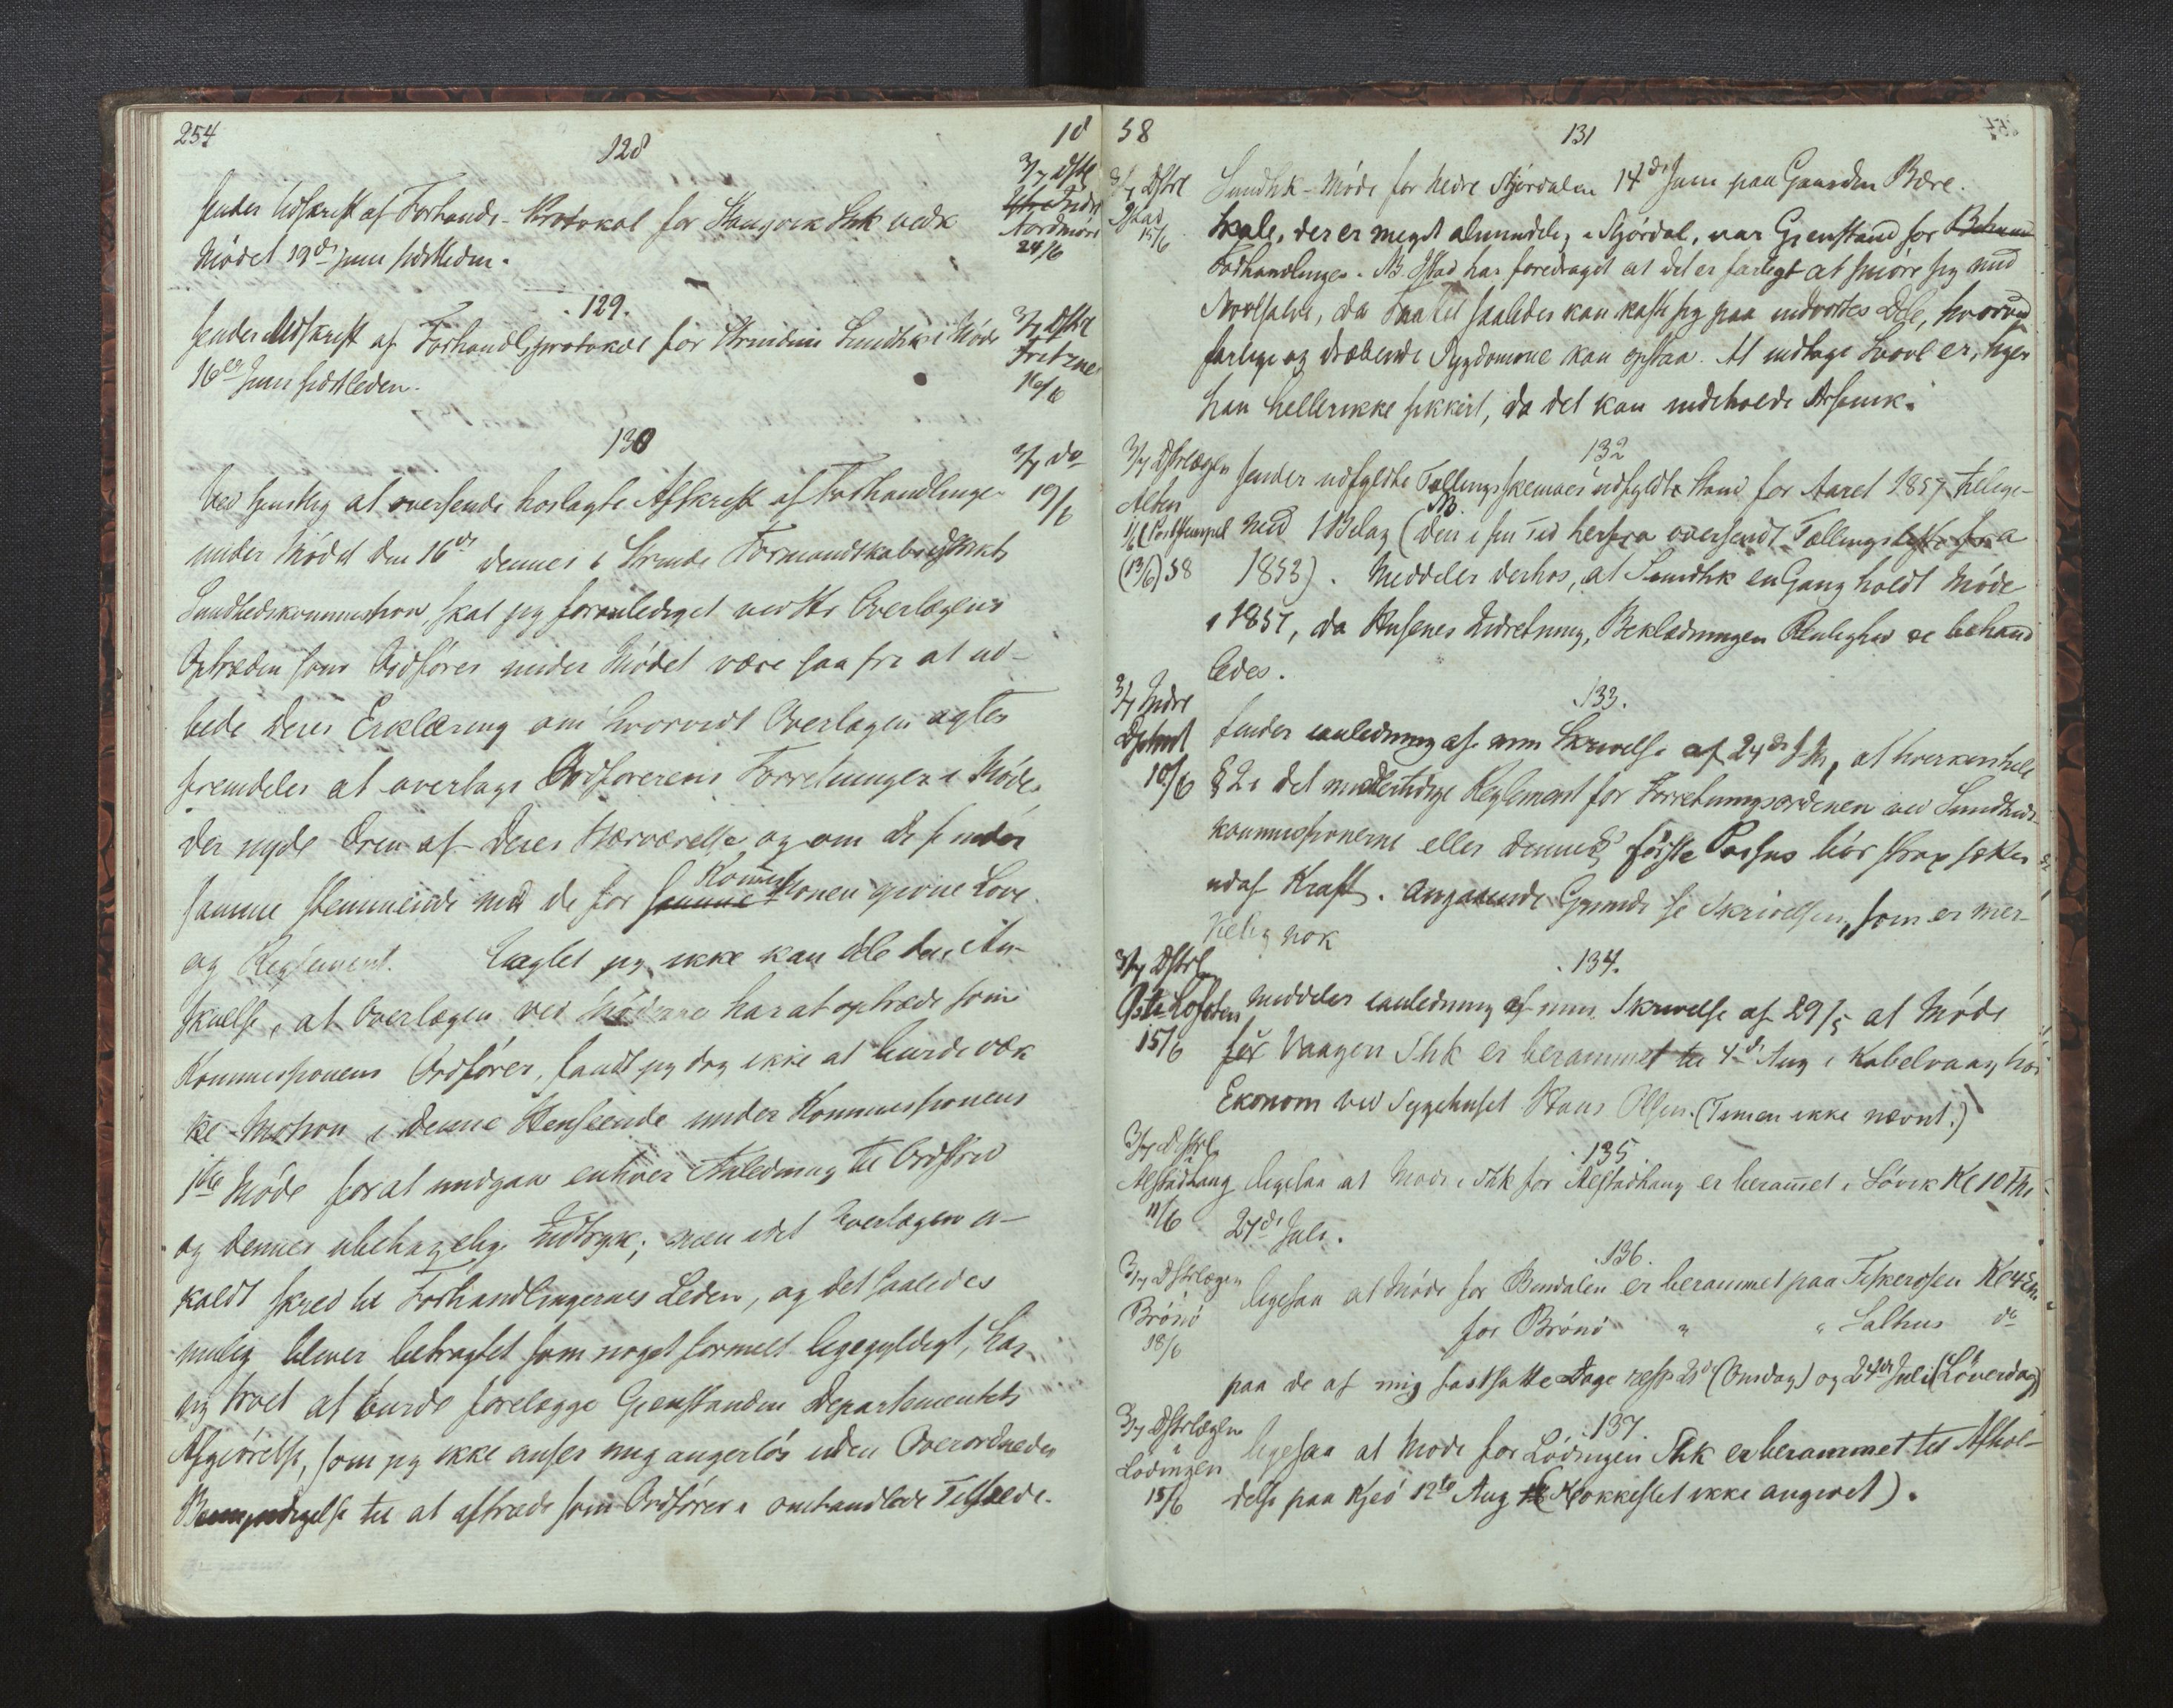 254
18
128
3/7 Dstl
Indr
Nordmøre
24/6
Sender Udskrift af Forhandl-Protokol for Shk vedk
Mødet 19de Juni sidstleden.
129.
3/7 Dstl
Fritzne
16/6
Sender Udskrift af Forhandlsprotokol for Sundhk i Møde
16de Juni sidstleden.
130
3/7 do
19/6
Ved hjemstlig at oversende hoslagte Afskrift af Forhandlinger
under Mødet den 16de dennes i Strinde Formandskabsdistrikts
Sundhedskommission, skal jeg foranlediget ved Hr Overlægens
Optræden som Ordfører under Mødet være saa fri at ud-
bede Deres Erklæring om hvorvidt Overlægen agter
fremdeles at overtage Ordførerens Forretninger i Møder,
der nyde Æren af Deres Nærværelse og om De finder
samme stemmende med de for Kommissionen givne Love
og Reglement. Ligtet jeg ikke kan dele den An-
skuelse, at Overlægen ved Møderne har at optræde som
Kommissionens Ordfører, fandt jeg dog ikke at burde væk
ke Motion i denne Henseende under Kommissionens
1ste Møde for at undgaa enhver Anledning til Ordstrid
og dennes ubehagelige Indtryk; men idet Overlægen u-
kaldt skred til Forhandlingernes Leden, og det saaledes
mulig bliver betragtet som noget formelt ligegyldigt, har
jeg troet at burde forelægge Gjenstanden Departementets
Afgjørelse, som jeg ikke anser mig angerløs uden Overordnedes
Bemyndigelse til at aftræde som Ordfører i omhandlede Tilfælde.
58
131
3/7 Dstl
Ystad
15/6
Sundhk-Møde for Nedre Stjørdalen 14de Juni paa Gaarden Bære.
Skab, der er meget almindelig i Stjørdal, var Gjenstand for
Forhandlinger. Ystad har foredraget at det er farligt at smøre sig med
Svovlsalve, da Fnattet saaledes kan kaste sig paa indvortes Dele, hvorved
farlige og dræbende Sygdomme kan opstaa. At indtage Svovl er, siger
han hellerikke sikkert, da det kan indeholde Arsenik.
132
3/7 Dstrlægen
Alten
1/6 (Poststempel
(13/6) 58
sender udfyldte Tællingsskemaer udfyldt Stand for Aaret 1857 tilige-
med 1 Bilag (den i sin Tid herfra oversendt Tællingsliste fra
1853). Meddeler derhos, at Sundhk en Gang holdt Møde
i 1857, da Husenes Indretning, Beklædningen Renlighed &c behand
ledes.
133.
3/7 Indre
Dptmt
10/6
Sender i anledning af min Skrivelse af 24de f M, at hverken hele
§ 2 i det midlertidige Reglement for Forretningsordenen ved Sundheds
kommissionerne eller dennes første Passus bør strax sættes
ud af Kraft. Angaaende Grunde se Skrivelsen, som er mær-
kelig nok
134.
3/7 Dstrl
Øst Lofoten
15/6
meddeler i anledning af min Skrivelse af 29/5 at Møde
for Vaagen Shk er berammet til 4de Aug i Kabelvaag hos
Ekonom ved Sygehuset Hans Olsen. (Timen ikke nævnt.)
135.
3/7 Dstrl
Alstadhaug
11/6
ligesaa at Møde i Shk for Alstadhaug er beramet i Søvik Kl 10 Fm
27de Juli.
136.
3/7 Dstrlægen
Brønø
18/6
ligesaa at Møde for Bindalen er berammet paa Fiskerosen Kl 4 Em
for Brønø " " Salhus do
paa de af mig fastsatte Dage resp 2 (Onsdag) og 24de Juli (Løverdag)
137.
3/7 Dstrlægen
i
Lødingen
15/6
ligesaa at Møde for Lødingen Shk er berammet til Afhol-
delse paa Kjeø 12te Aug (Klokkeslet ikke angivet).